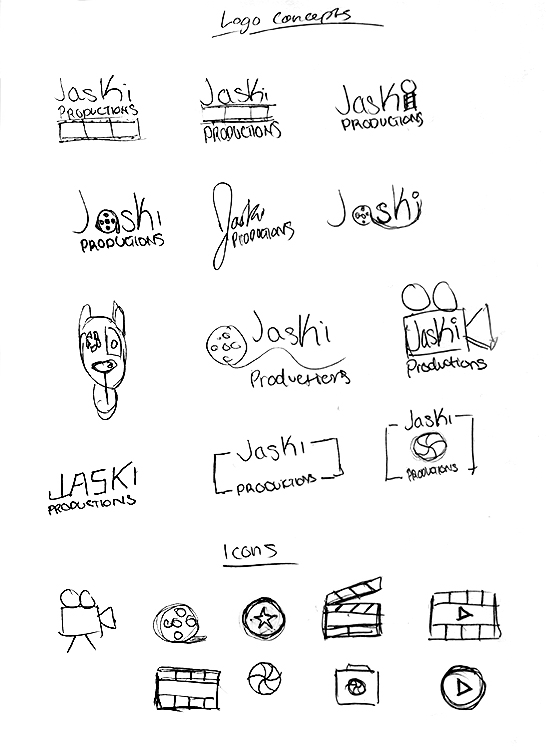 Logo Concepts
Jaski
PRODUCTIONS
Jaski
PRODUCTIONS
Jaski
PRODUCTIONS
Jaski
PRODUCTIONS
Jaski
PRODUCTIONS
Jaski
Jaski
Productions
Jaski
Productions
JASKI
PRODUCTIONS
Jaski
PRODUCTIONS
Jaski
PRODUCTIONS
Icons